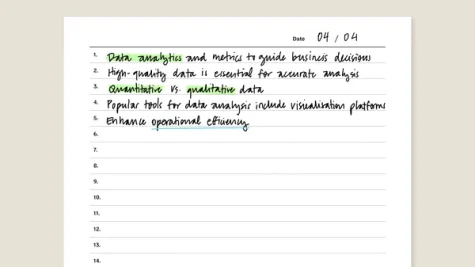 Date 04/04
1. Data analytics and metrics to guide business decisions
2. High-quality data is essential for accurate analysis
3. Quantitative vs. qualitative data
4. Popular tools for data analysis include visualization platforms
5. Enhance operational efficiency
6.
7.
8.
9.
10.
11.
12.
13.
14.